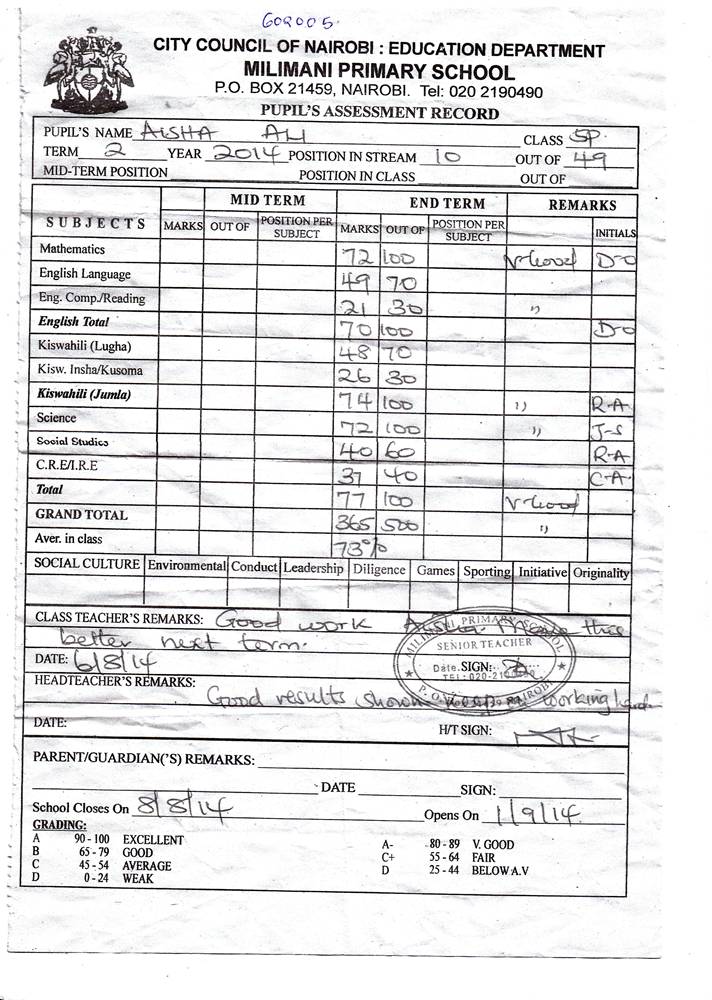 609005.
CITY COUNCIL OF NAIROBI : EDUCATION DEPARTMENT
MILIMANI PRIMARY SCHOOL
P.O. BOX 21459, NAIROBI. Tel: 020 2190490
PUPIL'S ASSESSMENT RECORD
PUPIL'S NAME AISHA ALI CLASS 5P.
TERM 2 YEAR 2014 POSITION IN STREAM 10 OUT OF 49
MID-TERM POSITION POSITION IN CLASS OUT OF
MID TERM END TERM REMARKS
SUBJECTS MARKS OUT OF POSITION PER SUBJECT MARKS OUT OF POSITION PER SUBJECT INITIALS
Mathematics 72 100 V-Good D-O
English Language 49 70
Eng. Comp./Reading 21 30 "
English Total 70 100 D-O
Kiswahili (Lugha) 48 70
Kisw. Insha/Kusoma 26 30
Kiswahili (Jumla) 74 100 " R-A
Science 72 100 " J-S
Social Studies 40 60 R-A
C.R.E/I.R.E 37 40 C-A
Total 77 100 V-Good
GRAND TOTAL 365 500 "
Aver. in class 73%
SOCIAL CULTURE Environmental Conduct Leadership Diligence Games Sporting Initiative Originality
CLASS TEACHER'S REMARKS: Good work Aisha.
better next term.
MILIMANI PRIMARY SCHOOL
SENIOR TEACHER
DATE: 6/8/14 Date. SIGN:
TEL: 020-21
P.O. NAIROBI
HEADTEACHER'S REMARKS:
Good results shown keep on working hard
DATE: H/T SIGN:
PARENT/GUARDIAN('S) REMARKS:
DATE SIGN:
School Closes On 8/8/14 Opens On 1/9/14
GRADING:
A 90 - 100 EXCELLENT A- 80 - 89 V. GOOD
B 65 - 79 GOOD C+ 55 - 64 FAIR
C 45 - 54 AVERAGE D 25 - 44 BELOW A.V
D 0 - 24 WEAK